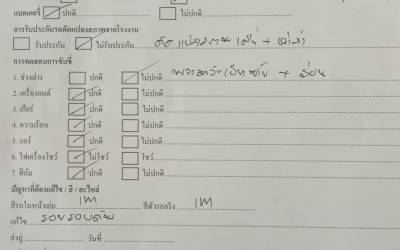 แบตเตอรี่ ปกติ ไม่ปกติ
การรับประกันรถดัดแปลงสภาพจากโรงงาน
รับประกัน ไม่รับประกัน
การทดสอบการขับขี่
1. ช่วงล่าง ปกติ ไม่ปกติ
2. เครื่องยนต์ ปกติ ไม่ปกติ
3. เกียร์ ปกติ ไม่ปกติ
4. ความร้อน ปกติ ไม่ปกติ
5. แอร์ ปกติ ไม่ปกติ
6. ไฟเครื่องโชว์ ไม่โชว์ โชว์
7. ฟิล์ม ปกติ ไม่ปกติ
ปัญหาที่ต้องแก้ไข / สี / อะไหล่
สีรถในหน้าเล่ม เทา สีตัวรถจริง เทา
แก้ไข รอยรอบคัน
ส่งอู่ วันที่